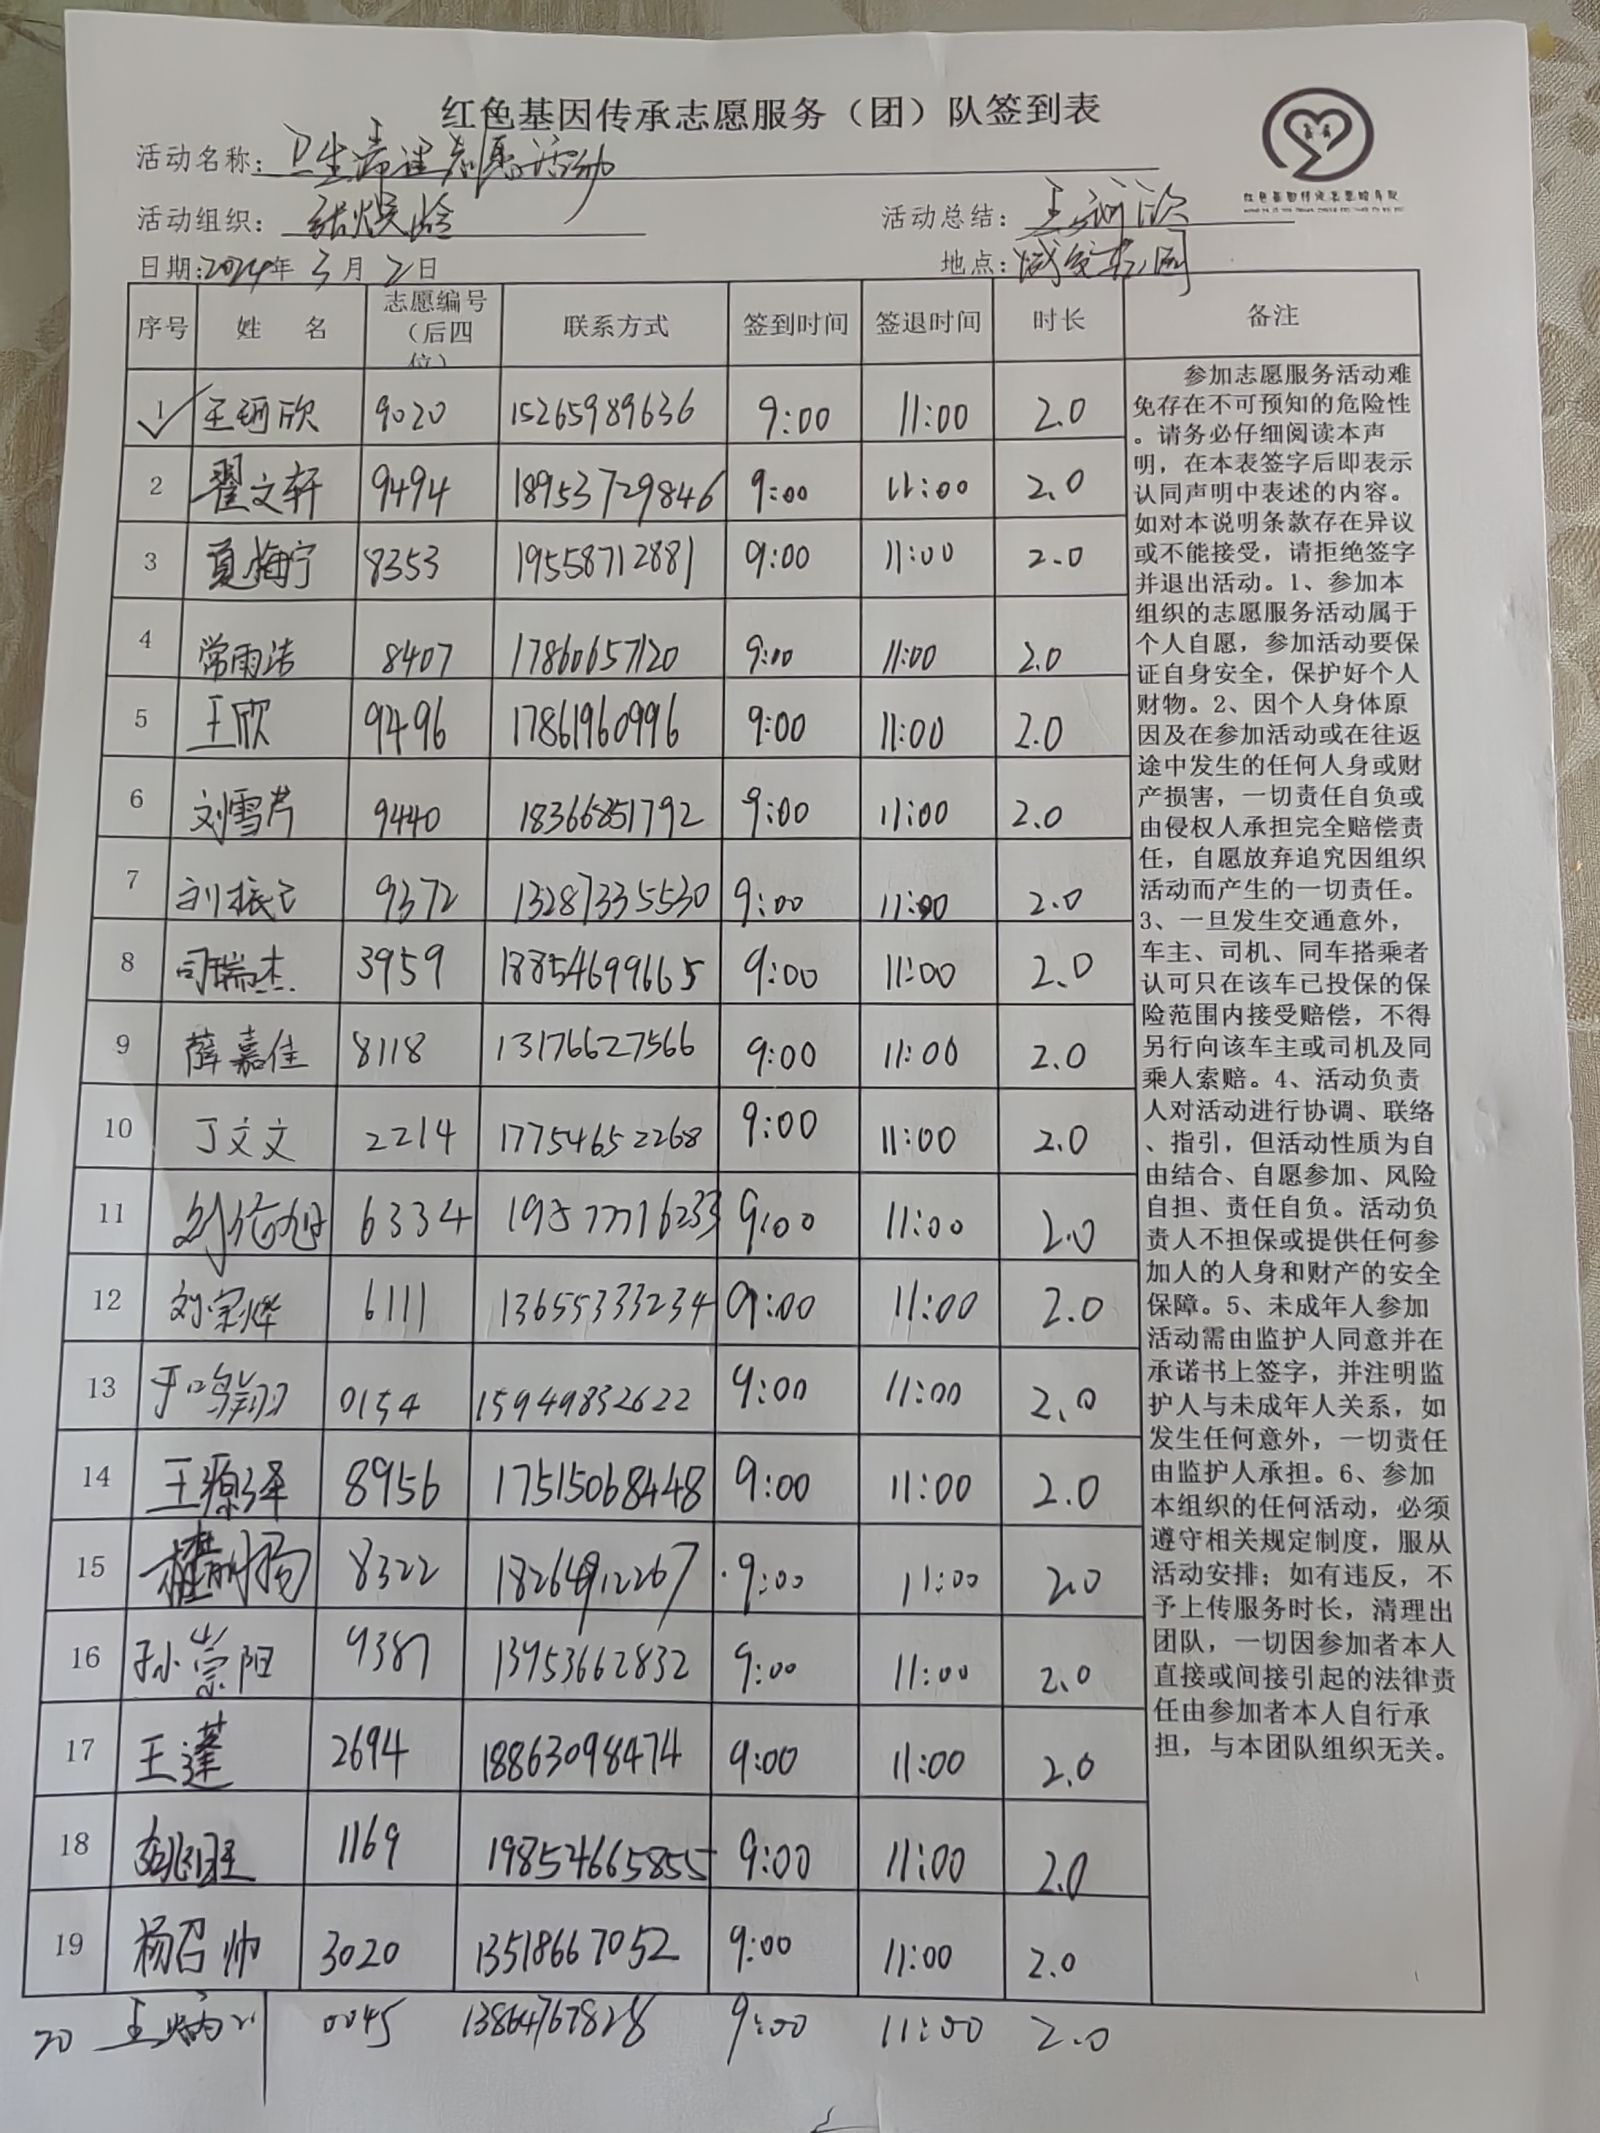 红色基因传承志愿服务（团）队签到表
活动名称：卫生清理志愿活动
活动组织： 活动总结：王珂欣
日期：2024年3月2日 地点：
序号 姓 名 志愿编号（后四位） 联系方式 签到时间 签退时间 时长 备注
1 王珂欣 9020 15265989636 9:00 11:00 2.0
2 翟文轩 9494 18953729846 9:00 11:00 2.0
3 夏梅宁 8353 19558712881 9:00 11:00 2.0
4 常雨洁 8407 17860657120 9:00 11:00 2.0
5 王欣 9496 17861960996 9:00 11:00 2.0
6 刘雪芹 9440 18366851792 9:00 11:00 2.0
7 刘振 9372 13287335530 9:00 11:00 2.0
8 司瑞杰 3959 18854699665 9:00 11:00 2.0
9 薛嘉佳 8118 13176627566 9:00 11:00 2.0
10 丁文文 2214 17754652268 9:00 11:00 2.0
11 6334 19577716233 9:00 11:00 2.0
12 刘荣烨 6111 13655333234 9:00 11:00 2.0
13 于鸣翔 0154 15949832622 9:00 11:00 2.0
14 王源泽 8956 17515068448 9:00 11:00 2.0
15 8322 18264912267 9:00 11:00 2.0
16 孙崇阳 9387 13953662832 9:00 11:00 2.0
17 王蓬 2694 18863098474 9:00 11:00 2.0
18 1169 19852466585 9:00 11:00 2.0
19 杨召帅 3020 13518667052 9:00 11:00 2.0
20 王炳川 0045 13864767828 9:00 11:00 2.0
参加志愿服务活动难
免存在不可预知的危险性
。请务必仔细阅读本声
明，在本表签字后即表示
认同声明中表述的内容。
如对本说明条款存在异议
或不能接受，请拒绝签字
并退出活动。1、参加本
组织的志愿服务活动属于
个人自愿，参加活动要保
证自身安全，保护好个人
财物。2、因个人身体原
因及在参加活动或在往返
途中发生的任何人身或财
产损害，一切责任自负或
由侵权人承担完全赔偿责
任，自愿放弃追究因组织
活动而产生的一切责任。
3、一旦发生交通意外，
车主、司机、同车搭乘者
认可只在该车已投保的保
险范围内接受赔偿，不得
另行向该车主或司机及同
乘人索赔。4、活动负责
人对活动进行协调、联络
、指引，但活动性质为自
由结合、自愿参加、风险
自担、责任自负。活动负
责人不担保或提供任何参
加人的人身和财产的安全
保障。5、未成年人参加
活动需由监护人同意并在
承诺书上签字，并注明监
护人与未成年人关系，如
发生任何意外，一切责任
由监护人承担。6、参加
本组织的任何活动，必须
遵守相关规定制度，服从
活动安排；如有违反，不
予上传服务时长，清理出
团队，一切因参加者本人
直接或间接引起的法律责
任由参加者本人自行承
担，与本团队组织无关。